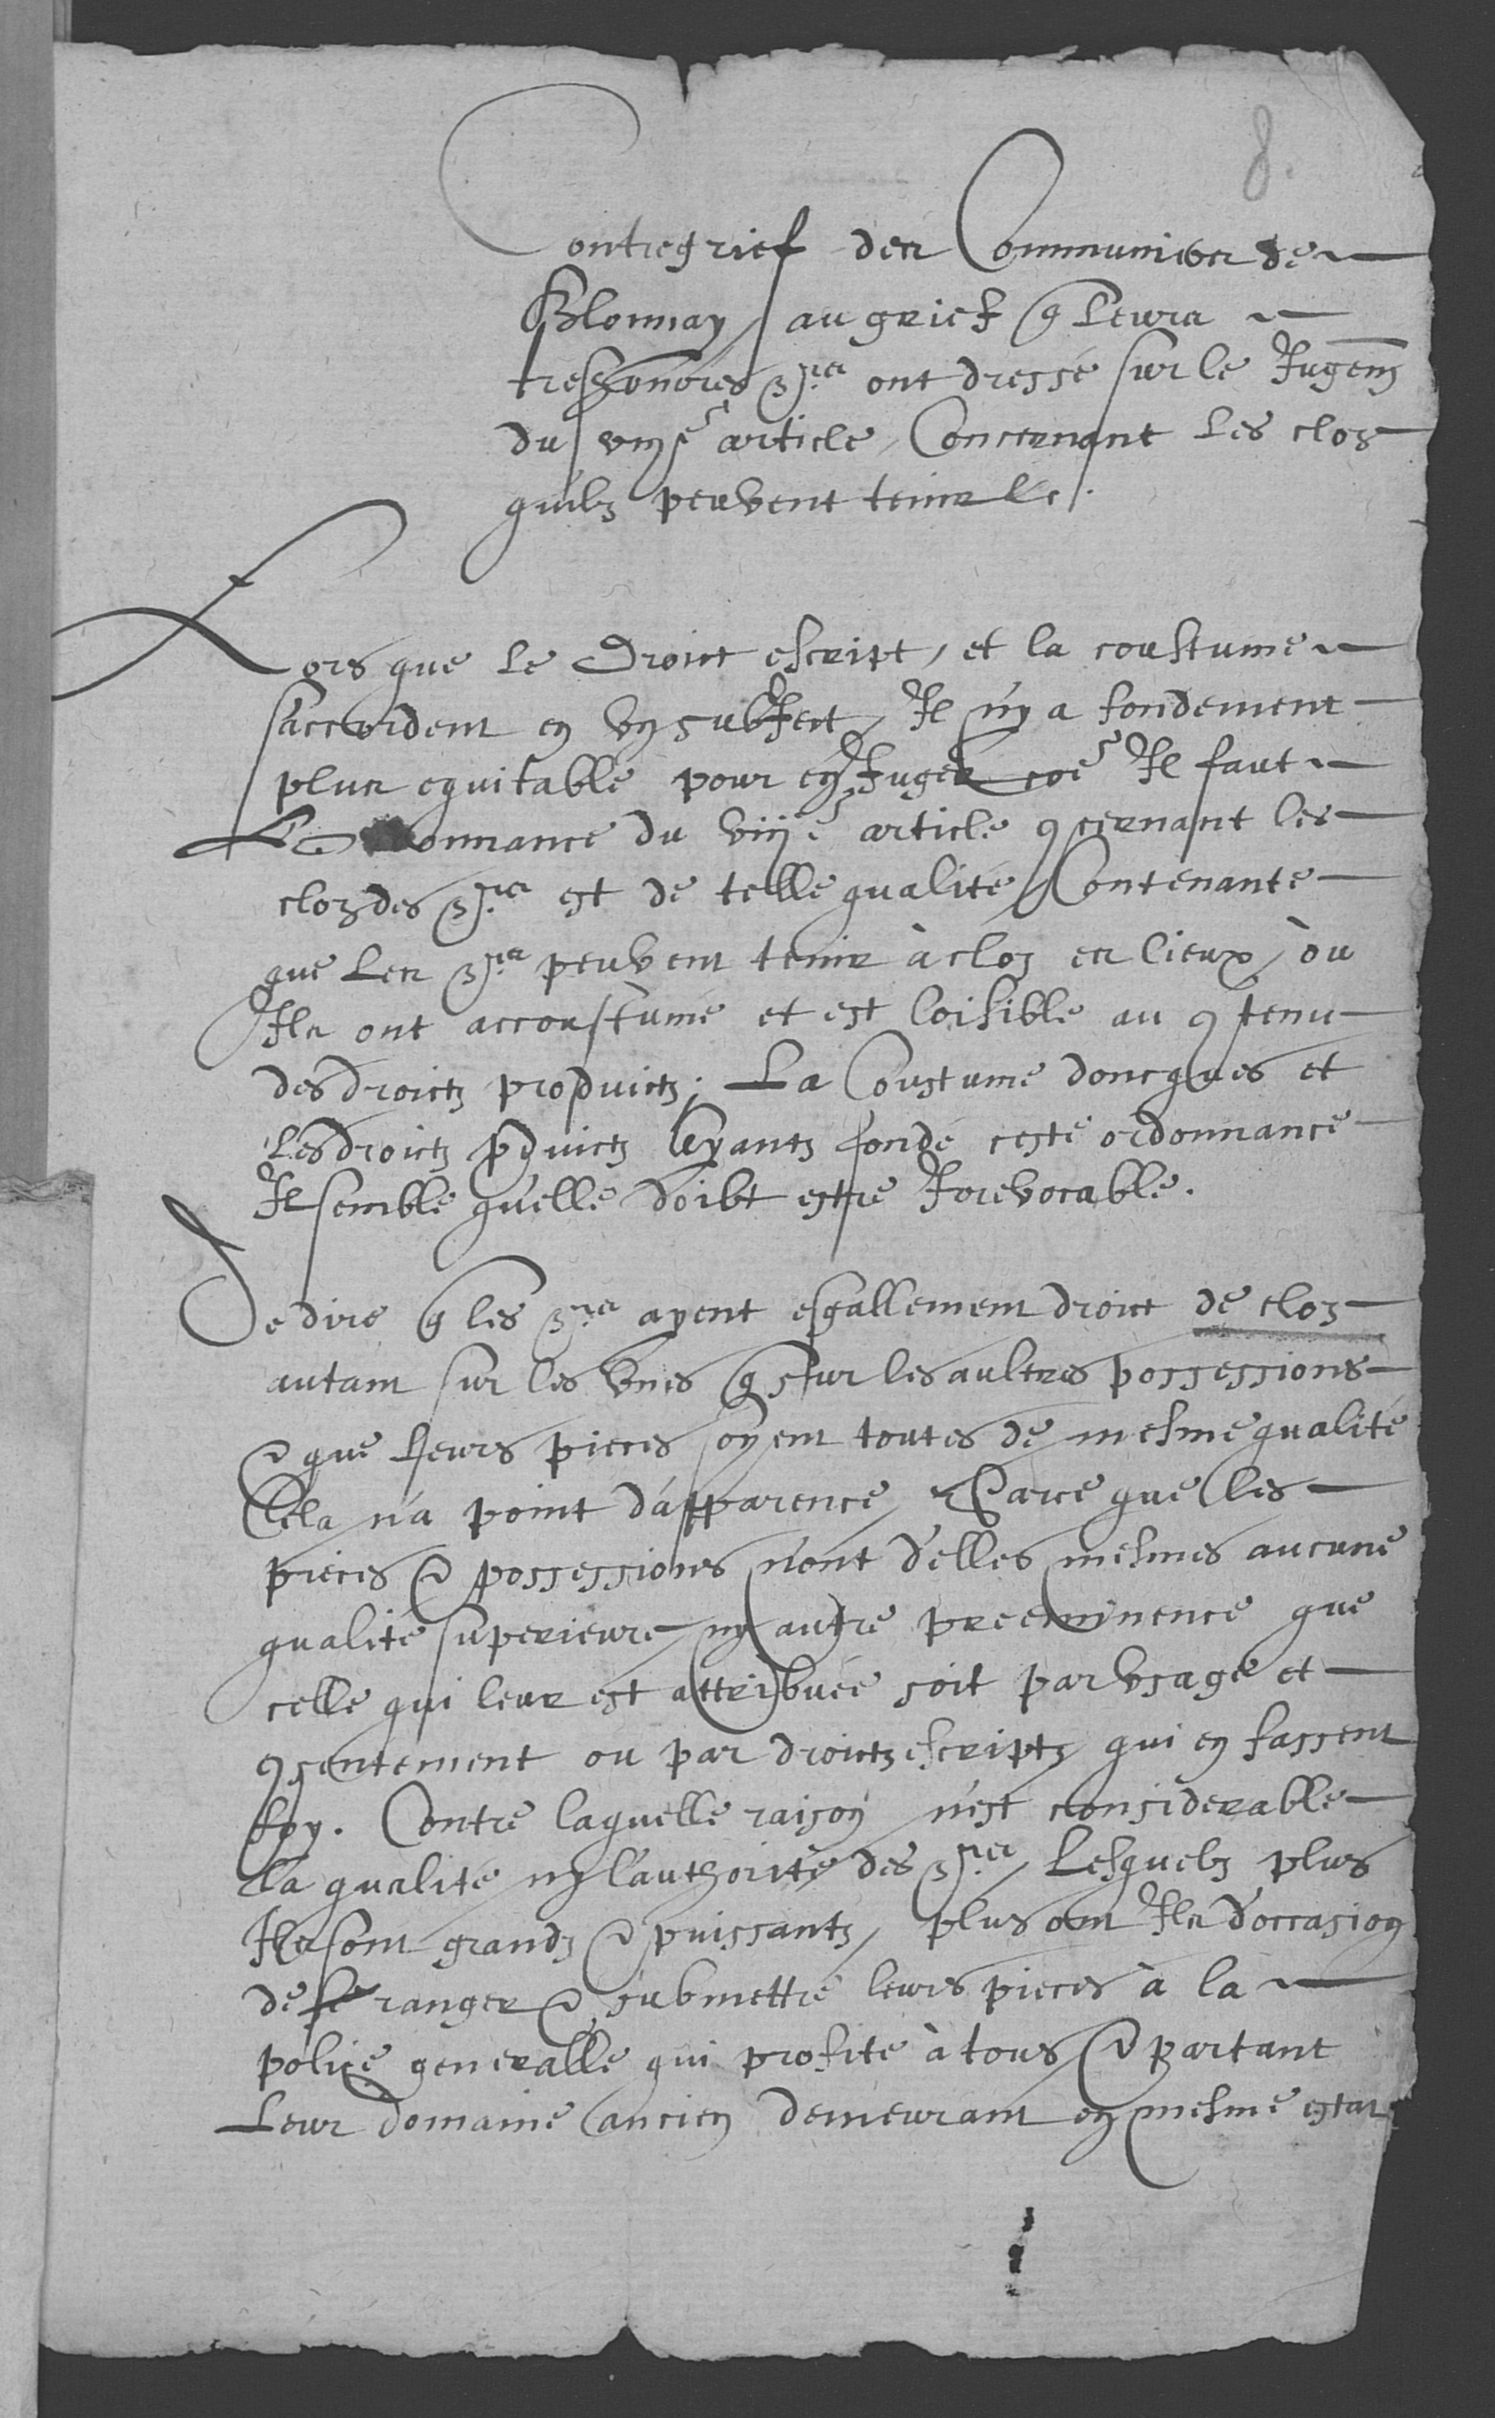 8.
Contregrief des Communiers de
Blonnay, au grief q leurs
treshonnorés Srs ont dressé sur le Jugemt
du viije article, Concernant les cloz
quilz peuvent tenir &c.
Lors que le Droict escript, et la coustume
s'accordent en vn subject, Il n'y a fondement
plus equitable pour en Juger coe Il faut
L'Ordonnance du viije article concernant les
cloz des Srs est de telle qualité, Contenante
que les Srs peuvent tenir à cloz es lieux, où
Ils ont accoustumé et est loisible au contenu
des droictz produictz; La Coustume doncques et
les droictz pduictz ayantz fondé ceste ordonnance
Il semble qu'elle doibt estre Irrevocable.
De dire q les Srs ayent esgallement droict de cloz
autant sur les vnes q sur les aultres possessions
& que leurs pieces soyent toutes de mesme qualité
Cela n'a point d'apparence, Parce que les
pieces & possessions n'ont d'elles mesmes aucune
qualité superieure, ny autre preeminence que
celle qui leur est attribuée soit par vsage et
consentement ou par droictz escriptz, qui en fassent
foy. Contre laquelle raison n'est considerable
la qualité ny l'authorité des Srs, Lesquelz plus
Ils sont grandz & puissantz, plus ont Ils d'occasion
de se ranger & submettre leurs pieces à la
police generalle qui profite à tous, & Partant
Leur domaine ancien demeurant en mesme estat